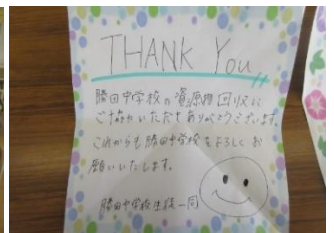 THANK You!!
勝田中学校の資源回収に
ご協力いただきありがとうございます。
これからも勝田中学校をよろしくお
願いいたします。
勝田中学校生徒一同